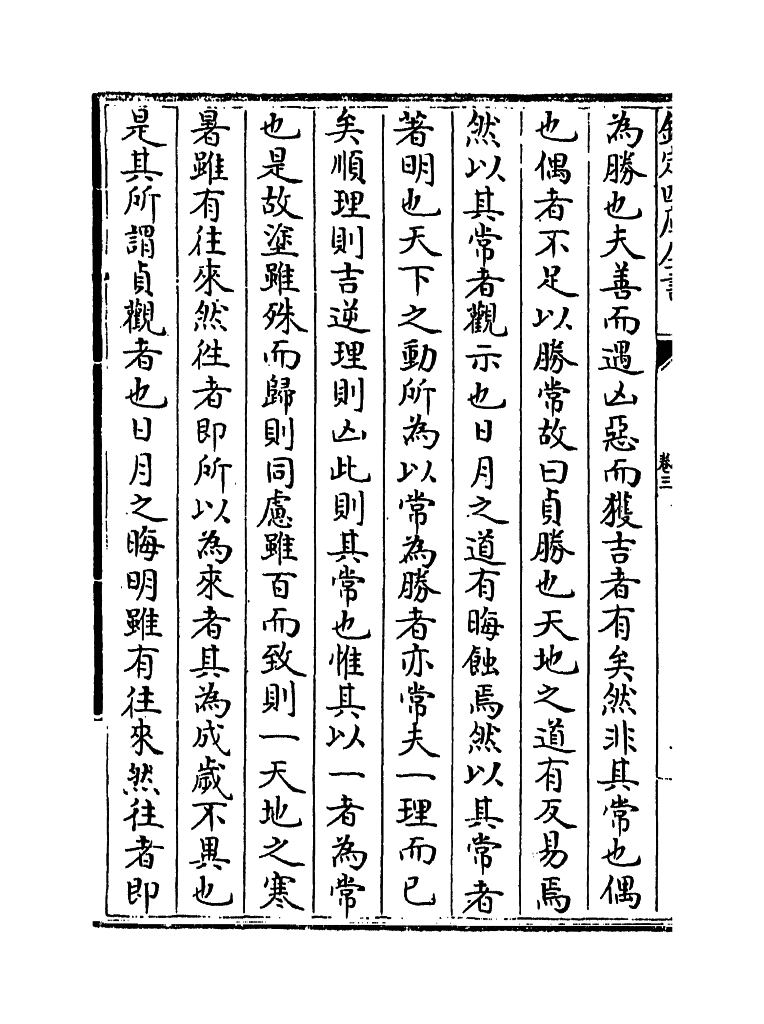 欽定四庫全書
卷三
為勝也夫善而遇凶惡而獲吉者有矣然非其常也偶
也偶者不足以勝常故曰貞勝也天地之道有反易焉
然以其常者觀示也日月之道有晦蝕焉然以其常者
著明也天下之動所為以常為勝者亦常夫一理而已
矣順理則吉逆理則凶此則其常也惟其以一者為常
也是故塗雖殊而歸則同慮雖百而致則一天地之寒
暑雖有往來然徃者即所以為來者其為成歲不異也
是其所謂貞觀者也日月之晦明雖有往來然往者即